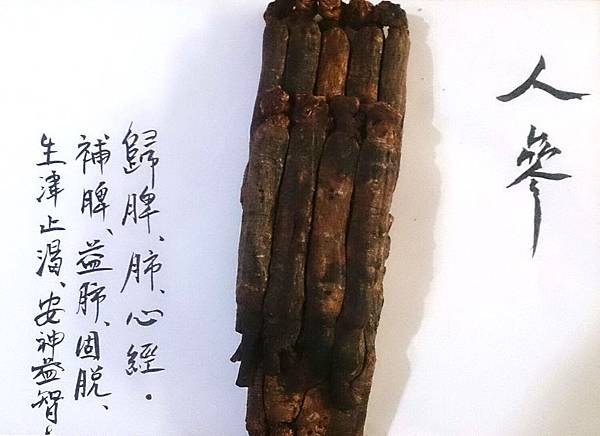 人參
歸脾、肺、心經。
補脾、益肺、固脫、
生津止渴、安神益智